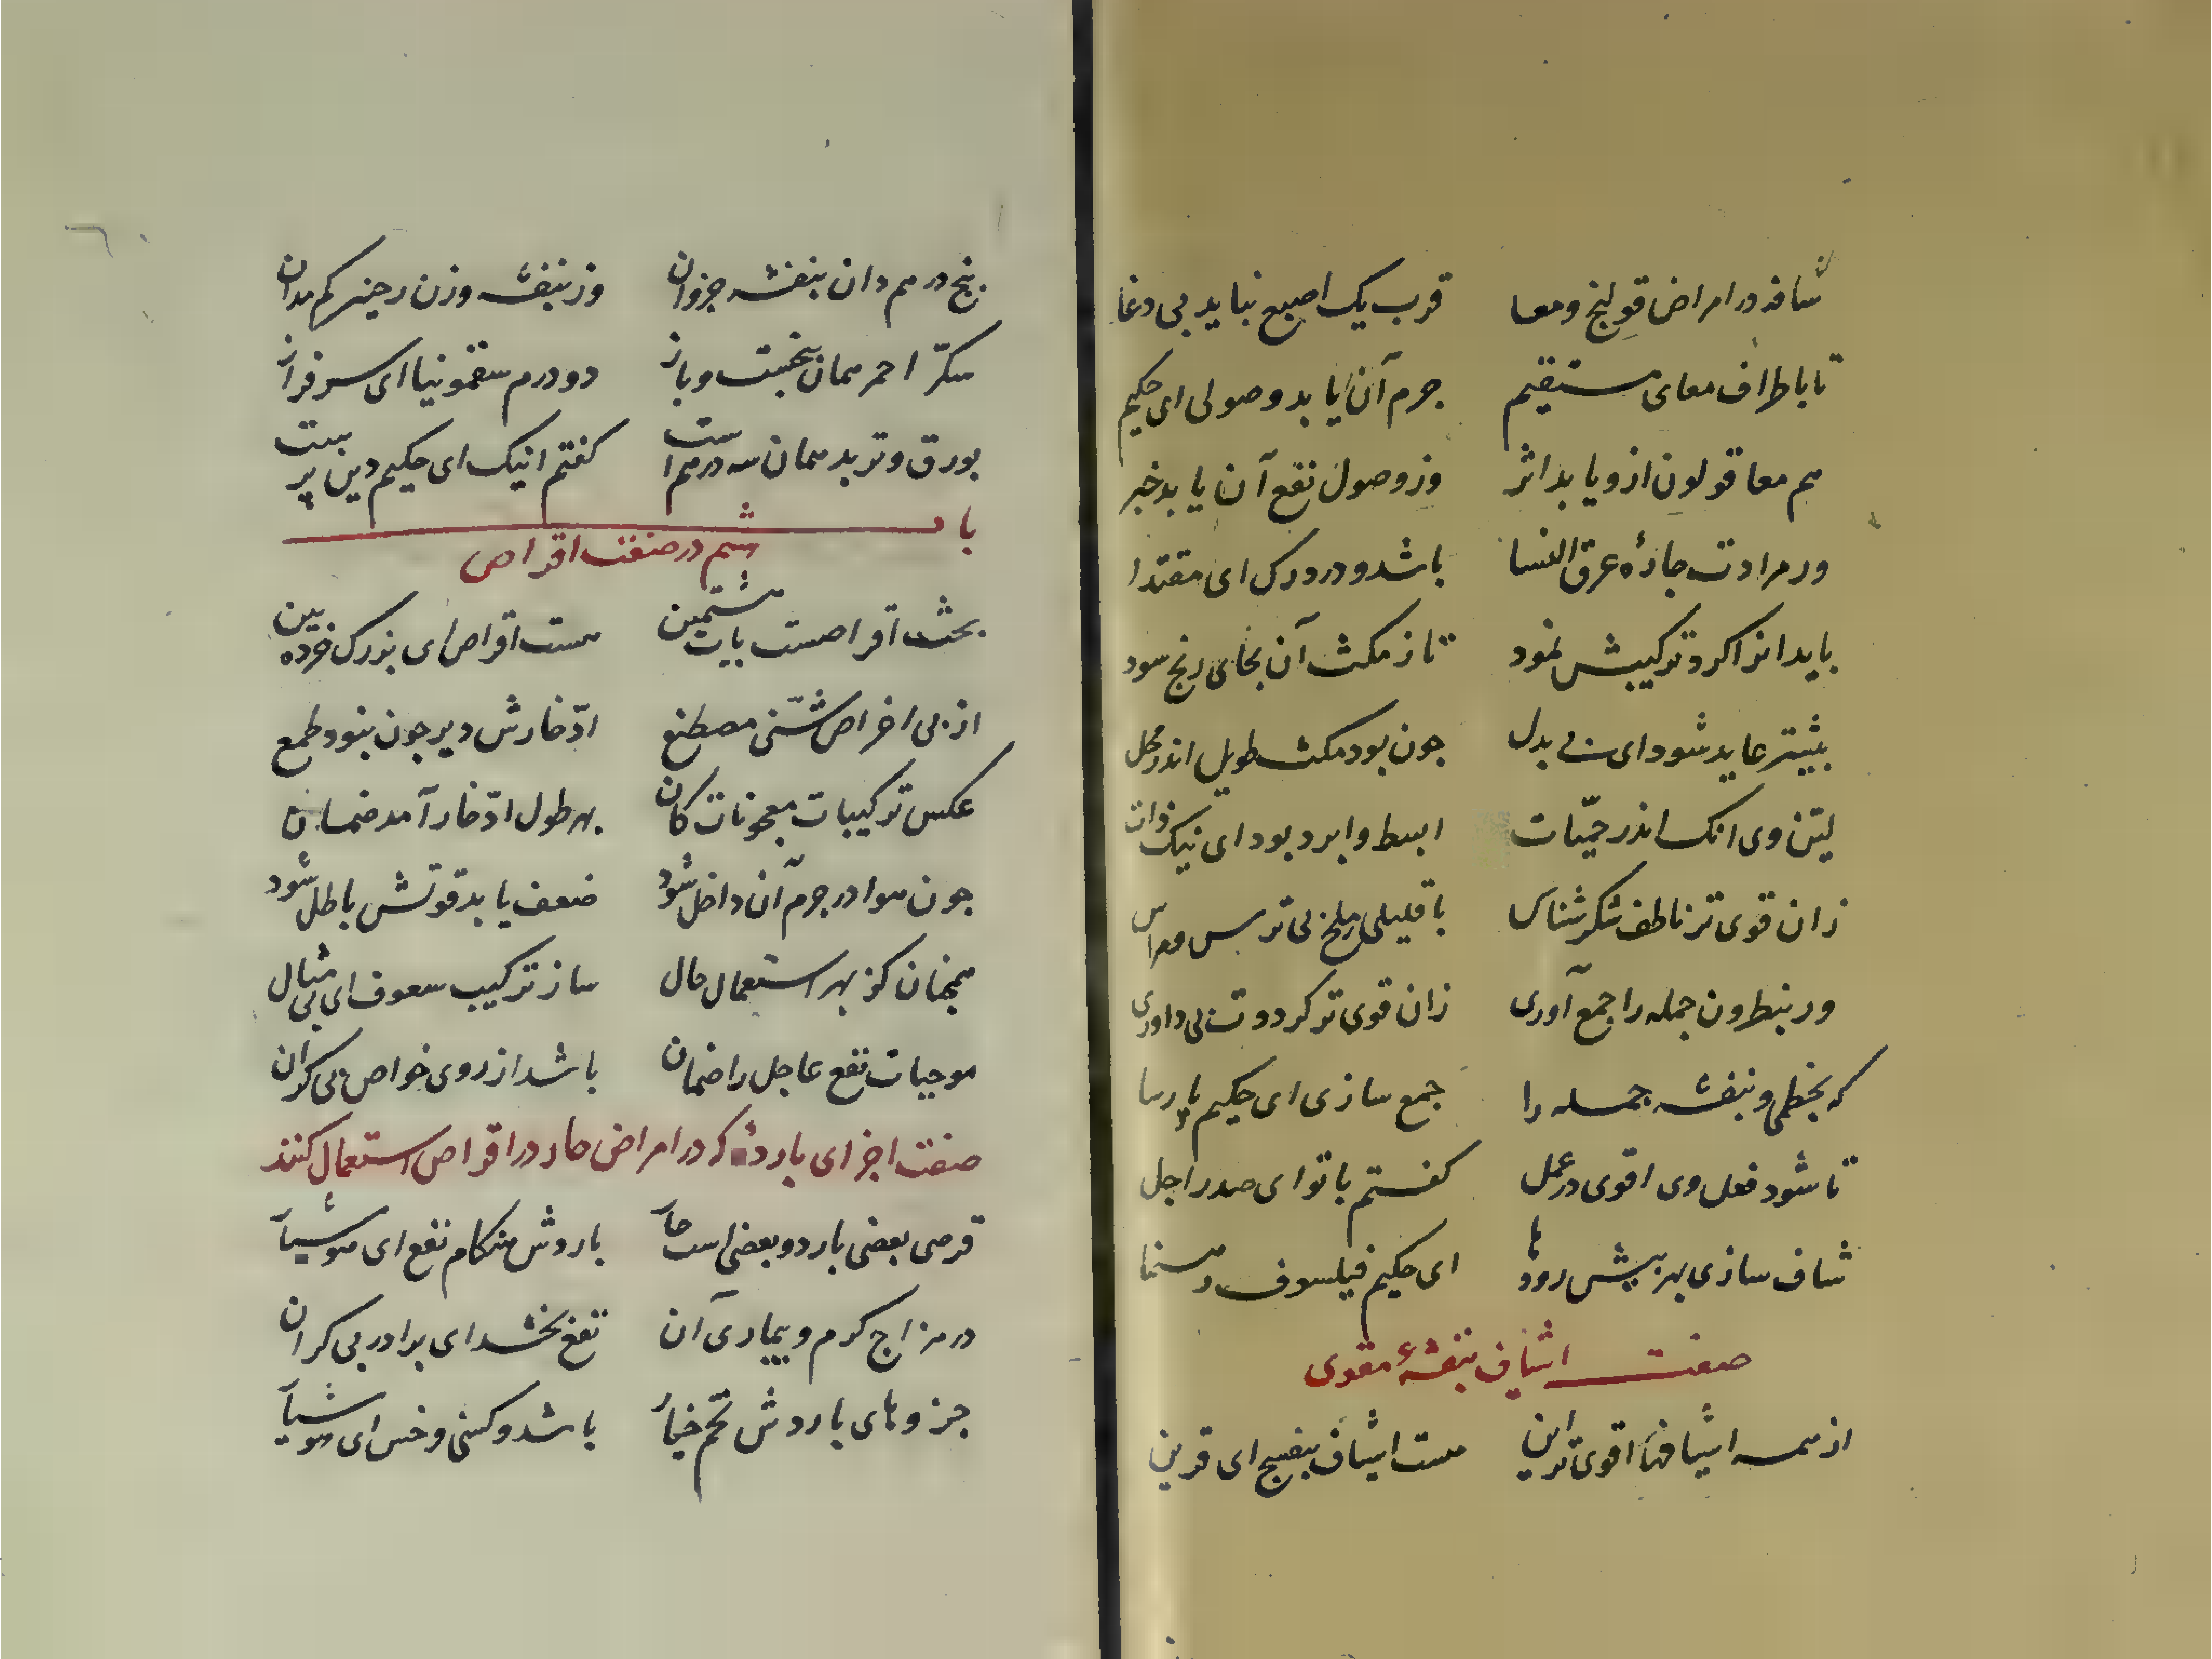 شافه در امراض قولنج و معا قرب یک اصبع نباید بی دغا
تا باطراف معای مستقیم جرم آن یابد وصولی ای حکیم
هم معا قولون ازو یابد اثر وز وصول نفع آن یابد خبر
ور مرادت جارهٔ عرق النسا باشد و درد ورک ای مقتدا
باید انرا کرد ترکیبش نمود تا ز مکث آن بجای رنج سود
بیشتر عاید شود ای بی بدل جون بود مکث طویل اندر محل
لیّن وی انک اندر حمّیات ابسط و ابرد بود ای نیک ذات
زان قوی تر ناطف شکر شناس با قلیلی ملح بی ترس
ور بنطرون جمله را جمع آوری زان قوی تر کرددت بی داوری
که بخطمی و بنفشه جمله را جمع سازی ای حکیم پارسا
تا شود فعل وی اقوی در عمل کفتم با تو ای صدر اجل
شاف سازی بهر پیش روده‌ها ای حکیم فیلسوف رهنما
صفت اشیاف بنفشهٔ مقوی
از همه اشیافها اقوی‌ترین هست اشیاف بنفسج ای قرین
پنج درهم دان بنفشه جزو آن وز بنفشه وزن رجینه کم مدان
سکّر احمر همان پنجست و باز دو درم سقمونیا ای سرفراز
بورق و تربد همان سه درهم است کفتم اینک ای حکیم دین پرست
باب
هشتم در صفت اقراص
بحث اقراصست باب هشتمین هست اقراص ای بزرک خرده بین
از پی اغراض شتّی مصطنع ادّخارش دیر جون بنود طمع
عکس ترکیبات معجونات کان بهر طول ادّخار آمد ضمان
جون هوا در جرم آن داخل شود ضعف یابد قوتش باطل شود
همجنان کز بهر استعمال حال ساز ترکیب سعوف ای بی مثال
موجبات نفع عاجل را ضمان باشد از روی خواص بی کران
صفت اجزای بارده که در امراض حار در اقراص استعمال کنند
قرص بعضی بارد و بعضی است حار باردش هنکام نفع ای هوشیار
در مزاج کرم و بیماری آن نفع بخشد ای برادر بی کران
جزوهای باردش تخم خیار باشد و کسنی و خس ای هوشیار